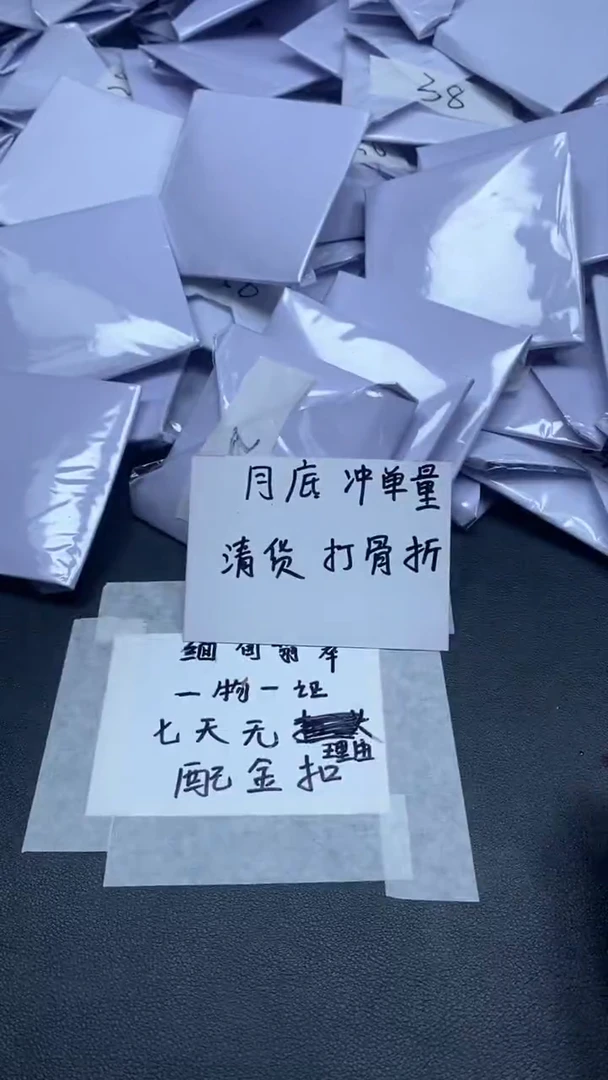 38
月底 冲单量
清货 打骨折
缅甸翡翠
一物一证
七天无
理由
配金扣